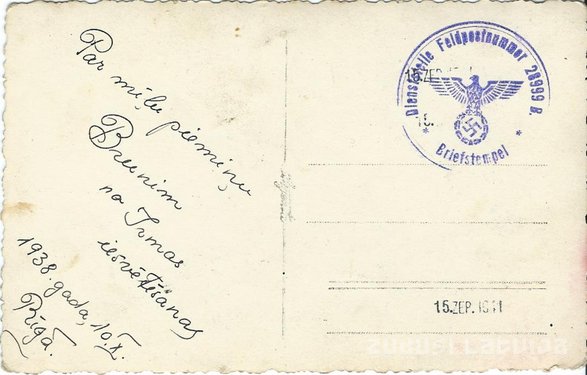 Par mīļu piemiņu
Brunim
no Irmas
iesvētīšanas
1938. gada, 10.X.
Rīgā.
Dienststelle Feldpostnummer 28999 B.
* Briefstempel *
15.ZEP.
15.ZEP. 1941